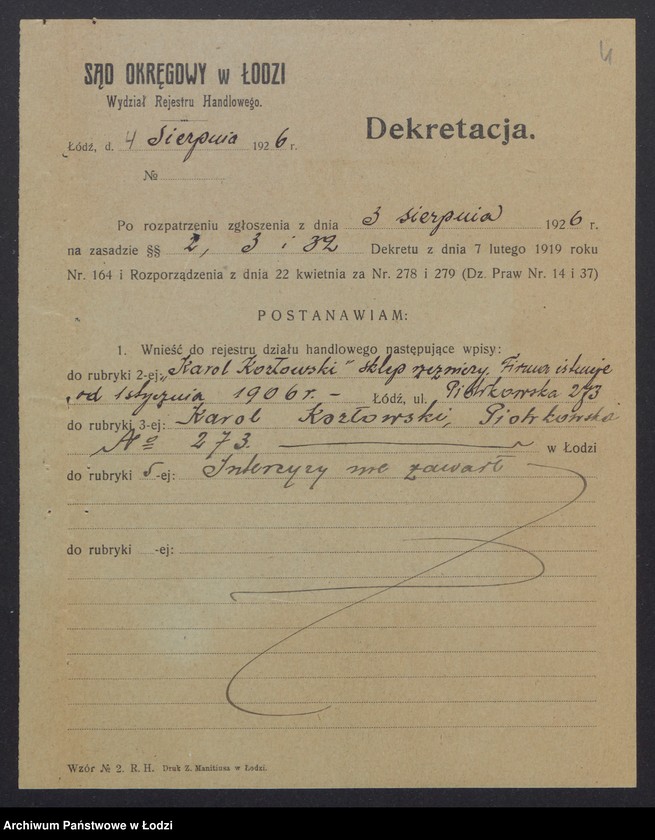 4
SĄD OKRĘGOWY w ŁODZI
Wydział Rejestru Handlowego.
Łódź, d. 4 Sierpnia 1926 r.
№
Dekretacja.
Po rozpatrzeniu zgłoszenia z dnia 3 sierpnia 1926 r.
na zasadzie §§ 2, 3 i 32 Dekretu z dnia 7 lutego 1919 roku
Nr. 164 i Rozporządzenia z dnia 22 kwietnia za Nr. 278 i 279 (Dz. Praw Nr. 14 i 37)
POSTANAWIAM:
1. Wnieść do rejestru działu handlowego następujące wpisy:
do rubryki 2-ej: „Karol Kozłowski" sklep rzeźniczy. Firma istnieje
od 1 stycznia 1906 r. – Łódź, ul. Piotrkowska 273
do rubryki 3-ej: Karol Kozłowski, Piotrkowska
№ 273. w Łodzi
do rubryki 5-ej: Intercyzy nie zawarł
do rubryki -ej:
Wzór № 2. R. H. Druk Z. Manitiusa w Łodzi.
Archiwum Państwowe w Łodzi